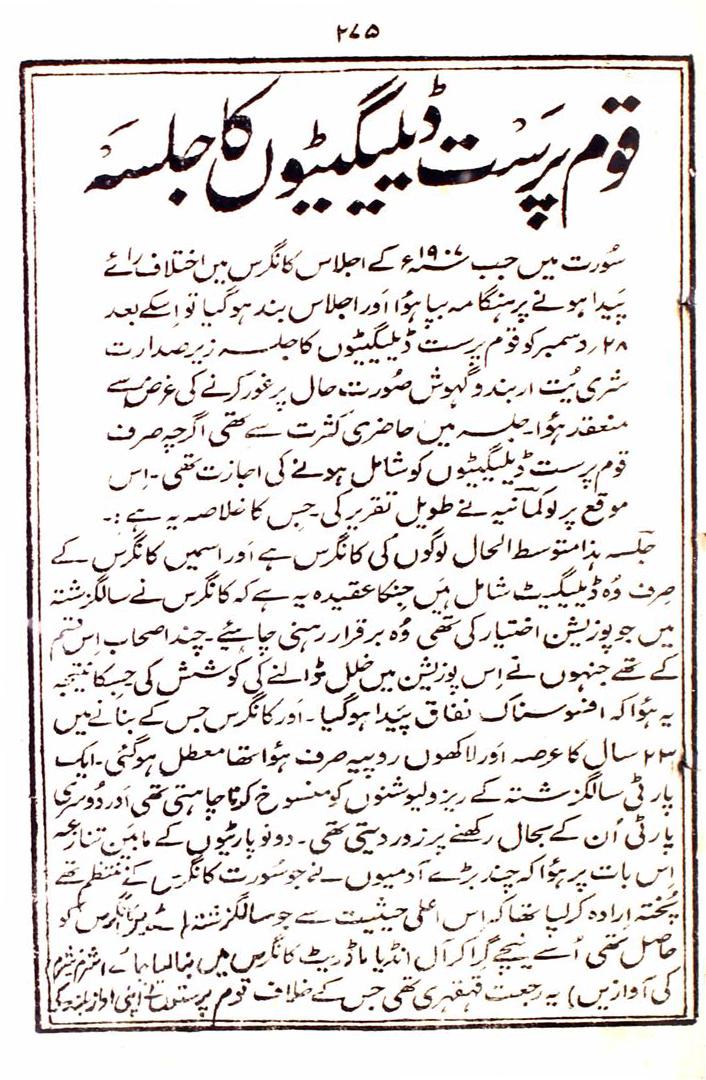 ۲۷۵
قوم پرست ڈیلیگیٹیوں کا جلسہ
سُورت میں جب ۱۹۰۷ء کے اجلاس کانگرس میں اختلاف رائے
پَیدا ہونے پر ہنگامہ بپا ہؤا اَور اجلاس بند ہو گیا تو اِسکے بعد
۲۸؍ دسمبر کو قوم پرست ڈیلیگیٹیوں کا جلسہ زیر صدارت
شری یُت اربندو گھوش صُورت حال پر غور کرنے کی غرض سے
منعقد ہؤا۔ جلسہ میں حاضری کثرت سے تھی اگرچہ صرف
قوم پرست ڈیلیگیٹیوں کو شامل ہونے کی اجازت تھی۔ اِس
موقع پر لوکمانیہ نے طویل تقریر کی۔ جس کا خلاصہ یہ ہے :۔
جلسہ ہذا متوسط الحال لوگوں کی کانگرس ہے اَور اسمیں کانگرس کے
صِرف وُہ ڈیلیگیٹ شامل ہَیں جنکا عقیدہ یہ ہے کہ کانگرس نے سالگزشتہ
میں جو پوزیشن اختیار کی تھی وُہ برقرار رہنی چاہئے۔ چند اصحاب اِس قسم
کے تھے جنہوں نے اِس پوزیشن میں خلل ڈالنے کی کوشش کی جسکا نتیجہ
یہ ہؤا کہ افسوسناک نفاق پَیدا ہو گیا۔ اَور کانگرس جس کے بنانے میں
۲۳ سال کا عرصہ اَور لاکھوں روپیہ صرف ہؤا تھا معطل ہو گئی۔ ایک
پارٹی سالگزشتہ کے ریزولیوشنوں کو منسوخ کرنا چاہتی تھی اَور دُوسری
پارٹی اُن کے بحال رکھنے پر زور دیتی تھی۔ دونو پارٹیوں کے مابین تنازعہ
اِس بات پر ہؤا کہ چند بڑے آدمیوں نے جو سُورت کانگرس کے منتظم تھے
پُختہ اِرادہ کر لیا تھا کہ اِس اعلیٰ حیثیت سے جو سالگزشتہ کانگرس کو
حاصل تھی اُسے نیچے گرا کر آل انڈیا ماڈریٹ کانگرس میں بنا لیا جائے (شرم شرم
کی آوازیں) یہ رجعت قہقہری تھی جس کے خلاف قوم پرستوں نے اپنی آواز بلند کی